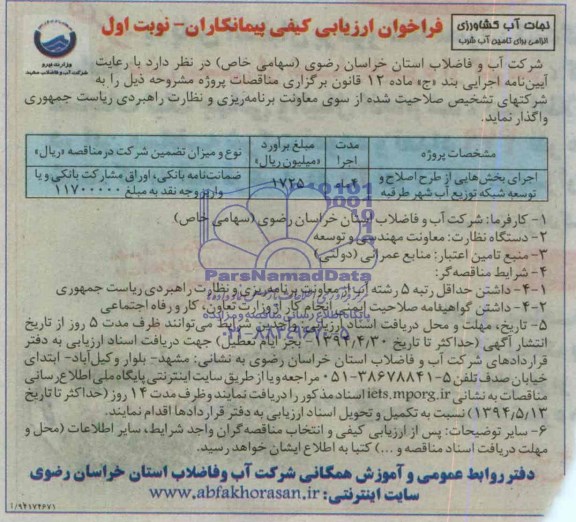 نجات آب کشاورزی
الزامی برای تامین آب شرب
فراخوان ارزیابی کیفی پیمانکاران- نوبت اول
وزارت نیرو
شرکت آب و فاضلاب مشهد
شرکت آب و فاضلاب استان خراسان رضوی (سهامی خاص) در نظر دارد با رعایت
آیین‌نامه اجرایی بند «ج» ماده ۱۲ قانون برگزاری مناقصات پروژه مشروحه ذیل را به
شرکتهای تشخیص صلاحیت شده از سوی معاونت برنامه‌ریزی و نظارت راهبردی ریاست جمهوری
واگذار نماید.
مشخصات پروژه
مدت اجرا
مبلغ برآورد «میلیون ریال»
نوع و میزان تضمین شرکت در مناقصه «ریال»
اجرای بخش‌هایی از طرح اصلاح و
توسعه شبکه توزیع آب شهر طرقبه
۴ ماه
۱۷۲۵
ضمانت‌نامه بانکی، اوراق مشارکت بانکی و یا
واریز وجه نقد به مبلغ ۱۱۷۰۰۰۰۰
۱- کارفرما: شرکت آب و فاضلاب استان خراسان رضوی (سهامی خاص)
۲- دستگاه نظارت: معاونت مهندسی و توسعه
۳- منبع تامین اعتبار: منابع عمرانی (دولتی)
۴- شرایط مناقصه‌گر:
۴-۱- داشتن حداقل رتبه ۵ رشته آب از معاونت برنامه‌ریزی و نظارت راهبردی ریاست جمهوری
۴-۲- داشتن گواهینامه صلاحیت ایمنی انجام کار از وزارت تعاون، کار و رفاه اجتماعی
۵- تاریخ، مهلت و محل دریافت اسناد ارزیابی: واجدین شرایط می‌توانند ظرف مدت ۵ روز از تاریخ
انتشار آگهی (حداکثر تا تاریخ ۱۳۹۴،۴،۳۰- بجز ایام تعطیل) جهت دریافت اسناد ارزیابی به دفتر
قراردادهای شرکت آب و فاضلاب استان خراسان رضوی به نشانی: مشهد- بلوار وکیل‌آباد- ابتدای
خیابان صدف تلفن ۵-۳۸۶۷۸۸۴۱-۰۵۱ مراجعه و یا از طریق سایت اینترنتی پایگاه ملی اطلاع‌رسانی
مناقصات به نشانی iets.mporg.ir اسناد مذکور را دریافت نمایند و ظرف مدت ۱۴ روز (حداکثر تا تاریخ
۱۳۹۴،۵،۱۳) نسبت به تکمیل و تحویل اسناد ارزیابی به دفتر قراردادها اقدام نمایند.
۶- سایر توضیحات: پس از ارزیابی کیفی و انتخاب مناقصه‌گران واجد شرایط، سایر اطلاعات (محل و
مهلت دریافت اسناد مناقصه و ...) کتبا به اطلاع ایشان خواهد رسید.
ParsNamadData
پایگاه اطلاع رسانی مناقصه و مزایده
۰۲۱-۸۸۳۴۹۶۷۰-۵
دفتر روابط عمومی و آموزش همگانی شرکت آب وفاضلاب استان خراسان رضوی
سایت اینترنتی: www.abfakhorasan.ir
۱/۹۴۱۷۴۶۷۱